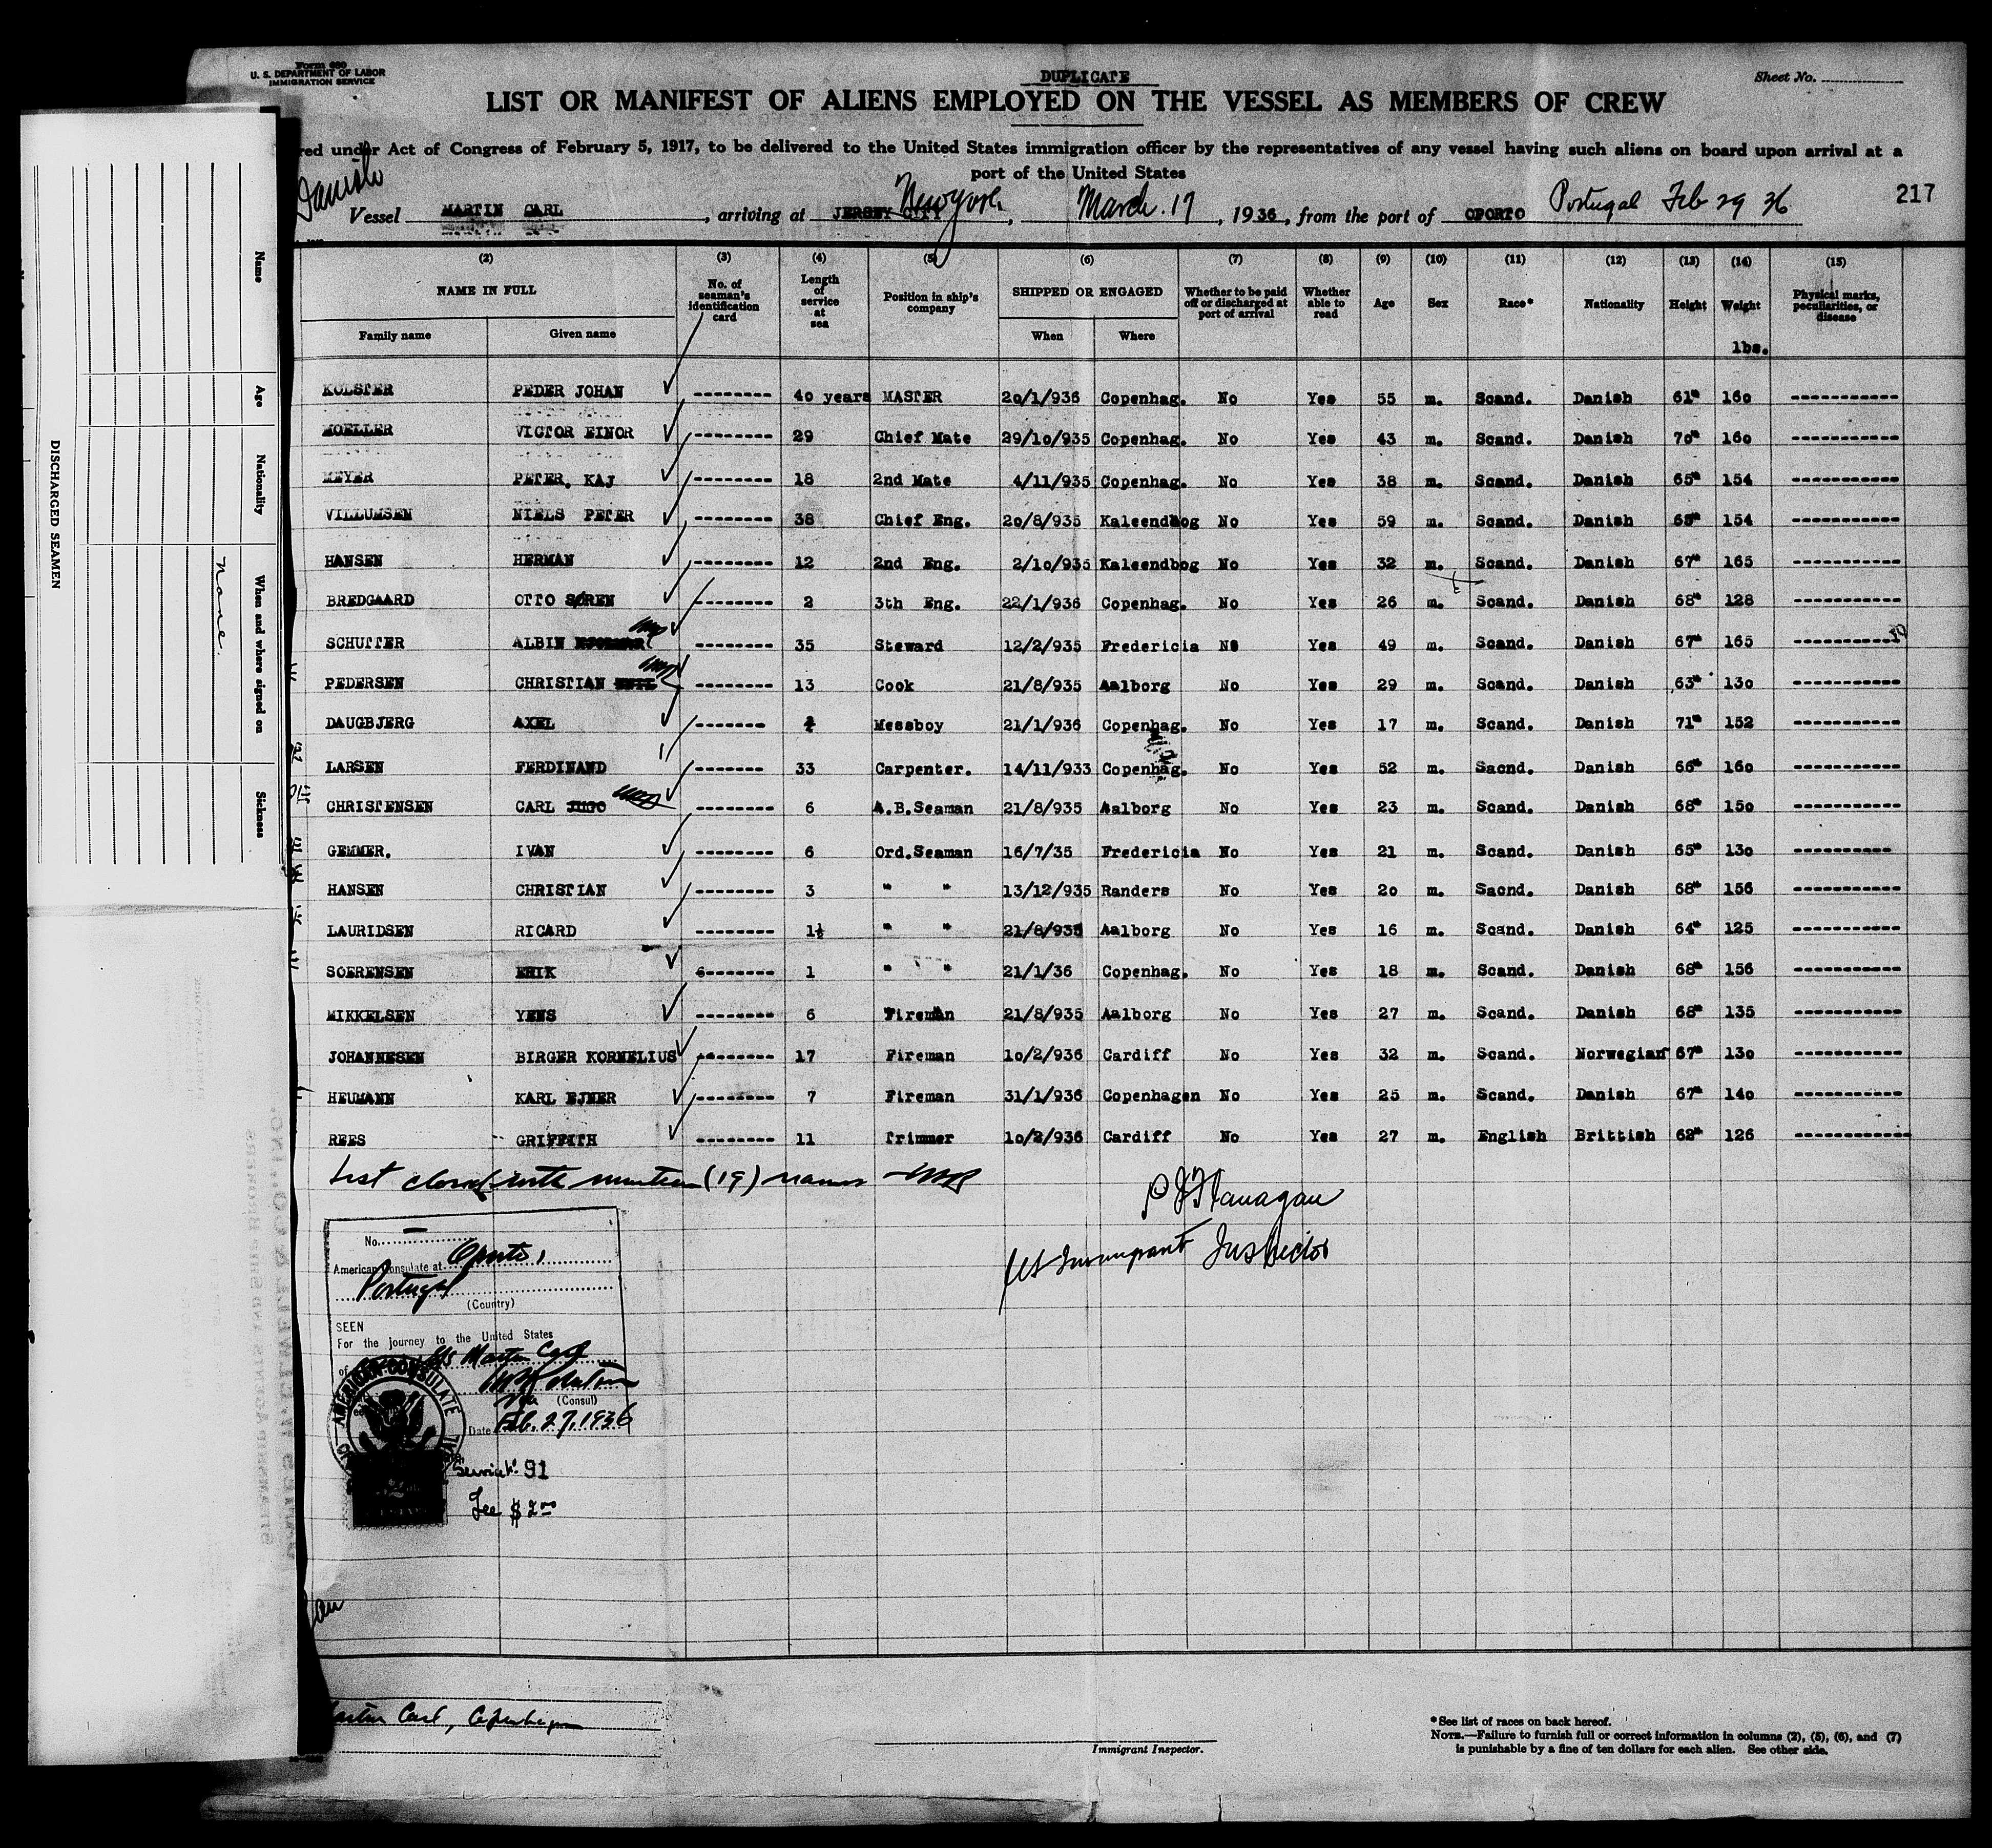 Form 680
U. S. DEPARTMENT OF LABOR
IMMIGRATION SERVICE
DUPLICATE
Sheet No.
LIST OR MANIFEST OF ALIENS EMPLOYED ON THE VESSEL AS MEMBERS OF CREW
red under Act of Congress of February 5, 1917, to be delivered to the United States immigration officer by the representatives of any vessel having such aliens on board upon arrival at a
port of the United States
Danish
Vessel MARTIN CARL, arriving at JERSEY CITY New York, March 17, 1936, from the port of OPORTO Portugal Feb 29 36
217
(2) (3) (4) (5) (6) (7) (8) (9) (10) (11) (12) (13) (14) (15)
NAME IN FULL No. of seaman's identification card Length of service at sea Position in ship's company SHIPPED OR ENGAGED Whether to be paid off or discharged at port of arrival Whether able to read Age Sex Race* Nationality Height Weight Physical marks, peculiarities, or disease
Family name Given name When Where lbs.
KOLSTER PEDER JOHAN -------- 40 years MASTER 20/1/936 Copenhag. No Yes 55 m. Scand. Danish 61" 160 -----------
MOELLER VICTOR EINOR -------- 29 Chief Mate 29/10/935 Copenhag. No Yes 43 m. Scand. Danish 70" 160 -----------
MEYER PETER, KAJ -------- 18 2nd Mate 4/11/935 Copenhag. No Yes 38 m. Scand. Danish 65" 154 -----------
VILLUMSEN NIELS PETER -------- 38 Chief Eng. 20/8/935 Kaleendbog No Yes 59 m. Scand. Danish 154 -----------
HANSEN HERMAN -------- 12 2nd Eng. 2/10/935 Kaleendbog No Yes 32 m. Scand. Danish 67" 165 -----------
BREDGAARD OTTO SØREN -------- 2 3th Eng. 22/1/936 Copenhag. No Yes 26 m. Scand. Danish 68" 128 -----------
SCHUTTER ALBIN -------- 35 Steward 12/2/935 Fredericia No Yes 49 m. Scand. Danish 67" 165 -----------
PEDERSEN CHRISTIAN -------- 13 Cook 21/8/935 Aalborg No Yes 29 m. Scand. Danish 63" 130 -----------
DAUGBJERG AXEL ------- Messboy 21/1/936 Copenhag. No Yes 17 m. Scand. Danish 71" 152 -----------
LARSEN FERDINAND ------- 33 Carpenter. 14/11/933 Copenhag. No Yes 52 m. Sacnd. Danish 66" 160 -----------
CHRISTENSEN CARL -------- 6 A.B.Seaman 21/8/935 Aalborg No Yes 23 m. Scand. Danish 68" 150 -----------
GEMMER. IVAN -------- 6 Ord.Seaman 16/7/35 Fredericia No Yes 21 m. Scand. Danish 65" 130 ----------
HANSEN CHRISTIAN -------- 3 " " 13/12/935 Randers No Yes 20 m. Sacnd. Danish 68" 156 -----------
LAURIDSEN RICARD -------- 1½ " " 21/8/935 Aalborg No Yes 16 m. Scand. Danish 64" 125 -----------
SOERENSEN ERIK -------- 1 " " 21/1/36 Copenhag. No Yes 18 m. Scand. Danish 68" 156 -----------
MIKKELSEN YENS -------- 6 Fireman 21/8/935 Aalborg No Yes 27 m. Scand. Danish 68" 135 -----------
JOHANNESEN BIRGER KORNELIUS -------- 17 Fireman 10/2/936 Cardiff No Yes 32 m. Scand. Norwegian 67" 130 -----------
HEUMANN KARL EJNER -------- 7 Fireman 31/1/936 Copenhagen No Yes 25 m. Scand. Danish 67" 140 -----------
REES GRIFFITH -------- 11 Trimmer 10/2/936 Cardiff No Yes 27 m. English Brittish 62" 126 ------------
List closed with nineteen (19) names
P J Flanagan
US Immigrant Inspector
No.
American Consulate at Oporto,
Portugal
(Country)
SEEN
For the journey to the United States
of SS Martin Carl
Vice (Consul)
Date Feb. 27, 1936
AMERICAN CONSULATE
Service No. 91
Fee $2.00
Martin Carl, Copenhagen
Immigrant Inspector.
*See list of races on back hereof.
NOTE.—Failure to furnish full or correct information in columns (2), (5), (6), and (7)
is punishable by a fine of ten dollars for each alien. See other side.
DISCHARGED SEAMEN
Name
Age
Nationality
When and where signed on
Sickness
None.